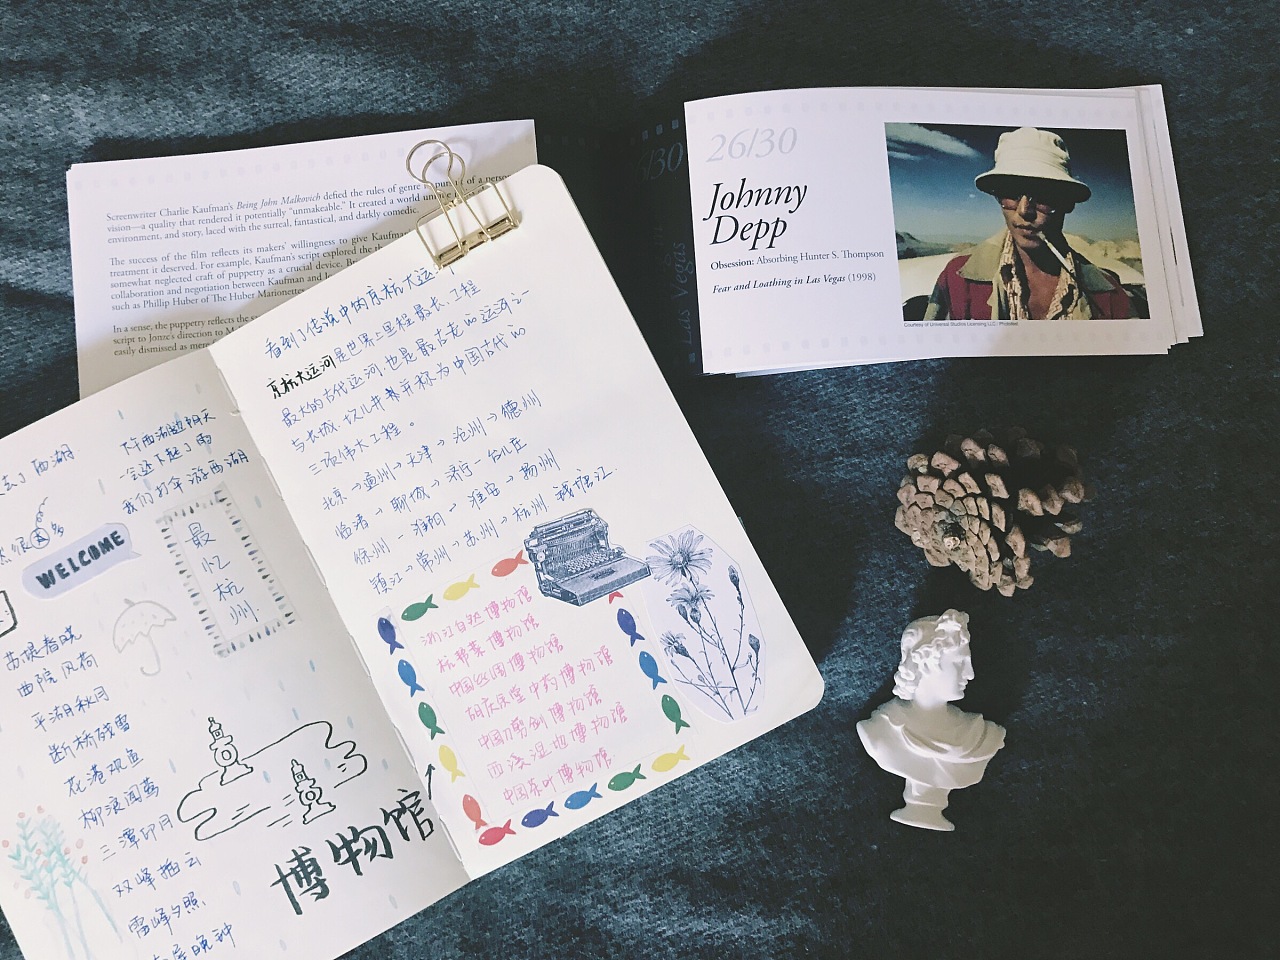 Screenwriter Charlie Kaufman's Being John Malkovich defied the rules of genre
vision—a quality that rendered it potentially "unmakeable." It created a world
environment, and story, laced with the surreal, fantastical, and darkly comedic.
The success of the film reflects its makers' willingness to give
treatment it deserved. For example, Kaufman's script explored the
somewhat neglected craft of puppetry as a crucial device.
collaboration and negotiation between Kaufman and
such as Phillip Huber of The Huber Marionettes
In a sense, the puppetry reflects the
script to Jonze's direction to
easily dismissed as mere
26/30
Johnny
Depp
Obsession: Absorbing Hunter S. Thompson
Fear and Loathing in Las Vegas (1998)
Courtesy of Universal Studios Licensing LLC
/30
Las Vegas
去了西湖
下午西湖边聊天
一会还下起了雨
我们打伞游西湖
WELCOME
最
忆
杭
州
苏堤春晓
曲院风荷
平湖秋月
断桥残雪
花港观鱼
柳浪闻莺
三潭印月
双峰插云
雷峰夕照
晚钟
博物馆
看到了传说中的京杭大运河
京杭大运河是世界上里程最长、工程
最大的古代运河,也是最古老的运河之一
与长城、坎儿井并称为中国古代的
三项伟大工程。
北京→通州→天津→沧州→德州
临清→聊城→济宁→台儿庄
徐州→淮阴→淮安→扬州
镇江→常州→苏州→杭州 钱塘江.
浙江自然博物馆
杭帮菜博物馆
中国丝绸博物馆
胡庆余堂中药博物馆
中国刀剪剑博物馆
西溪湿地博物馆
中国茶叶博物馆